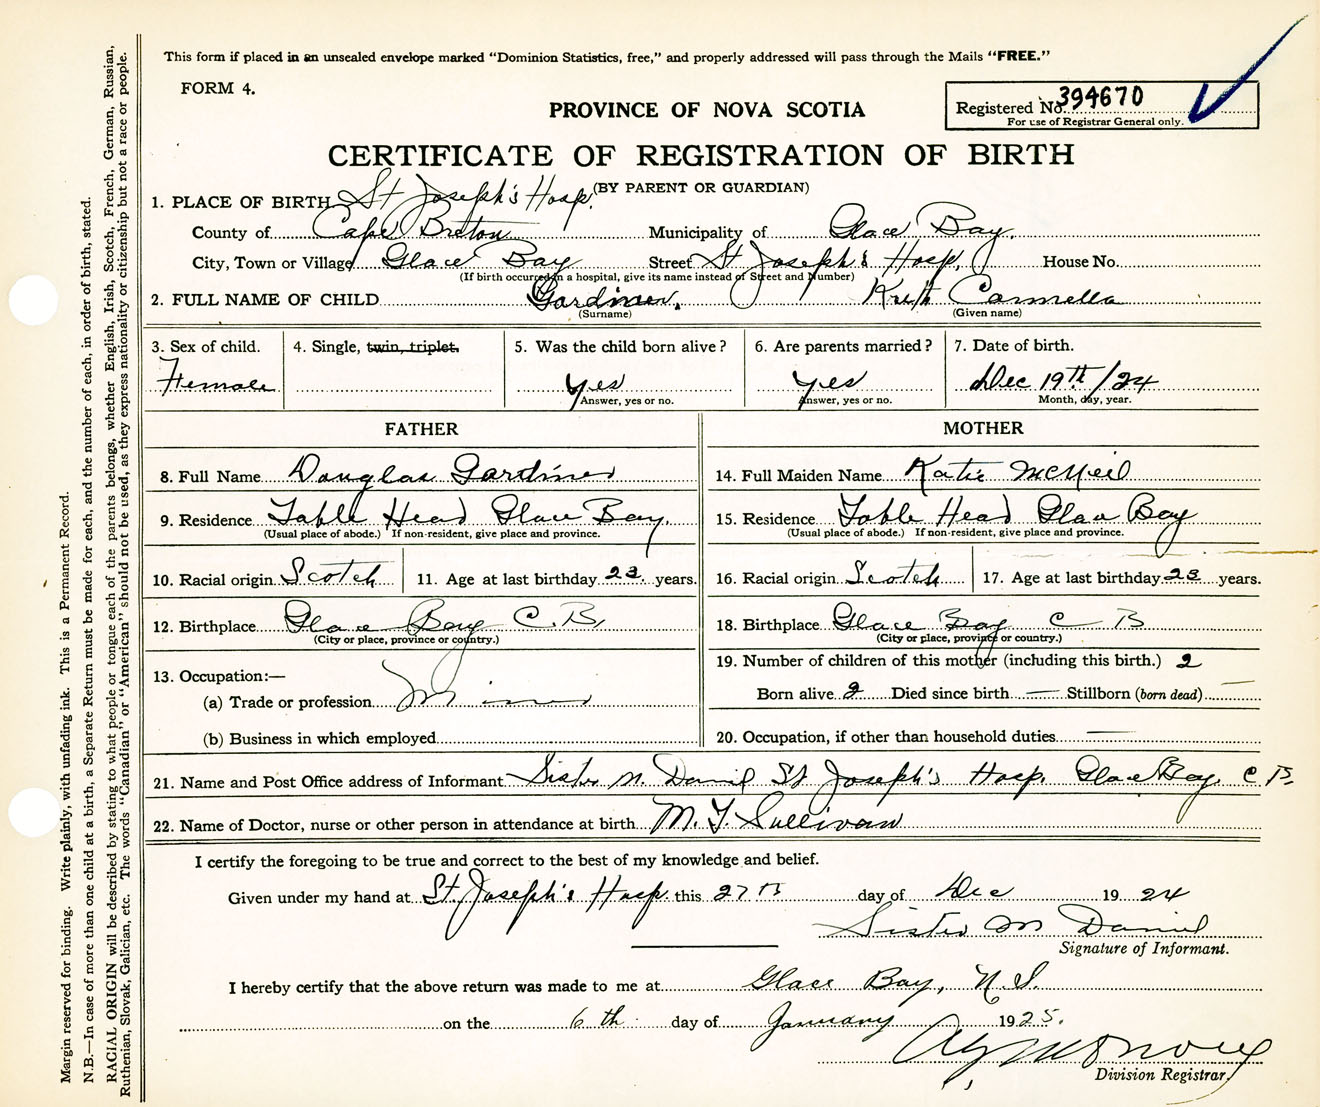 This form if placed in an unsealed envelope marked "Dominion Statistics, free," and properly addressed will pass through the Mails "FREE."
FORM 4.
PROVINCE OF NOVA SCOTIA
Registered No. 394670
For use of Registrar General only.
CERTIFICATE OF REGISTRATION OF BIRTH
(BY PARENT OR GUARDIAN)
1. PLACE OF BIRTH St Joseph's Hosp.
County of Cape Breton Municipality of Glace Bay.
City, Town or Village Glace Bay Street St Joseph's Hosp, House No.
(If birth occurred in a hospital, give its name instead of Street and Number)
2. FULL NAME OF CHILD Gardiner, Carmella
(Surname) (Given name)
3. Sex of child. 4. Single, twin, triplet. 5. Was the child born alive? 6. Are parents married? 7. Date of birth.
Female yes yes Dec 19th/24
Answer, yes or no. Answer, yes or no. Month, day, year.
FATHER MOTHER
8. Full Name Douglas Gardiner 14. Full Maiden Name Katie McNeil
9. Residence Table Head Glace Bay. 15. Residence Table Head Glace Bay
(Usual place of abode.) If non-resident, give place and province. (Usual place of abode.) If non-resident, give place and province.
10. Racial origin Scotch 11. Age at last birthday 23 years. 16. Racial origin Scotch 17. Age at last birthday 23 years.
12. Birthplace Glace Bay C.B. 18. Birthplace Glace Bay C B
(City or place, province or country.) (City or place, province or country.)
13. Occupation:— 19. Number of children of this mother (including this birth.) 2
(a) Trade or profession Miner Born alive 2 Died since birth — Stillborn (born dead) —
(b) Business in which employed 20. Occupation, if other than household duties —
21. Name and Post Office address of Informant Sister M. Daniel St Joseph's Hosp. Glace Bay. C B.
22. Name of Doctor, nurse or other person in attendance at birth M. T. Sullivan
I certify the foregoing to be true and correct to the best of my knowledge and belief.
Given under my hand at St. Joseph's Hosp. this 27th day of Dec 1924
Sister M Daniel
Signature of Informant.
I hereby certify that the above return was made to me at Glace Bay, N.S.
on the 6th day of January 1925.
Division Registrar.
Margin reserved for binding. Write plainly, with unfading ink. This is a Permanent Record.
N.B.—In case of more than one child at a birth, a Separate Return must be made for each, and the number of each, in order of birth, stated.
RACIAL ORIGIN will be described by stating to what people or tongue each of the parents belongs, whether English, Irish, Scotch, French, German, Russian,
Ruthenian, Slovak, Galician, etc. The words "Canadian" or "American" should not be used, as they express nationality or citizenship but not a race or people.